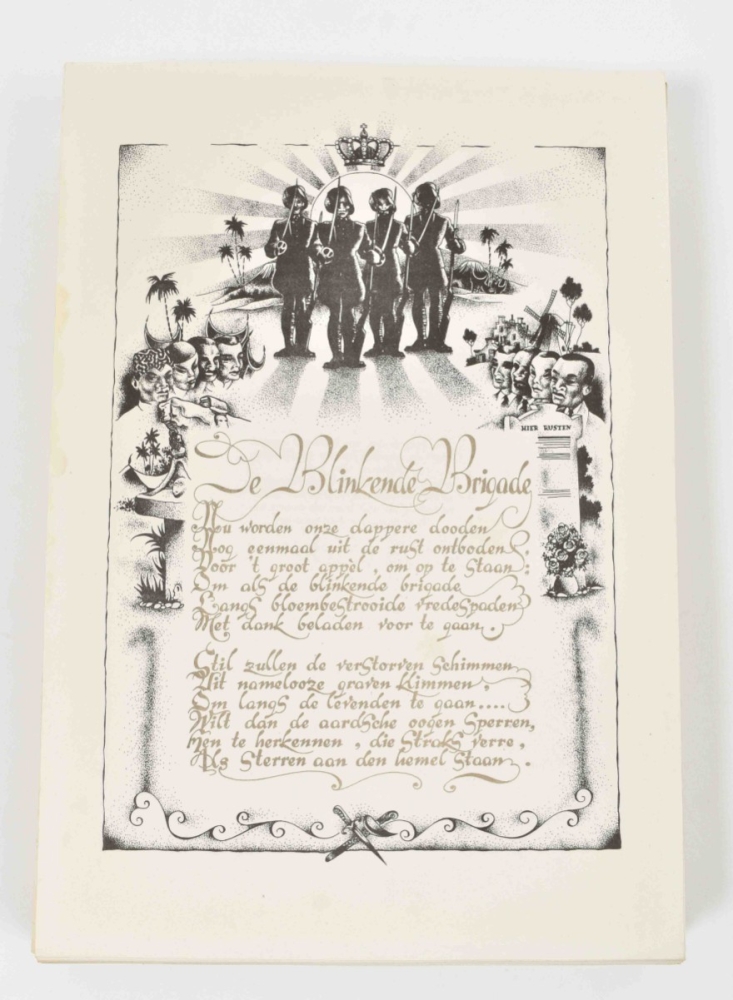 HIER RUSTEN
De Blinkende Brigade
Nu worden onze dappere dooden
Nog eenmaal uit de rust ontboden,
Voor 't groot appèl, om op te staan:
Om als de blinkende brigade
Langs bloembestrooide vredespaden
Met dank beladen voor te gaan.
Stil zullen de verstorven schimmen
Uit namelooze graven klimmen,
Om langs de levenden te gaan....
Wilt dan de aardsche oogen sperren,
Hen te herkennen, die straks verre,
Als sterren aan den hemel staan.